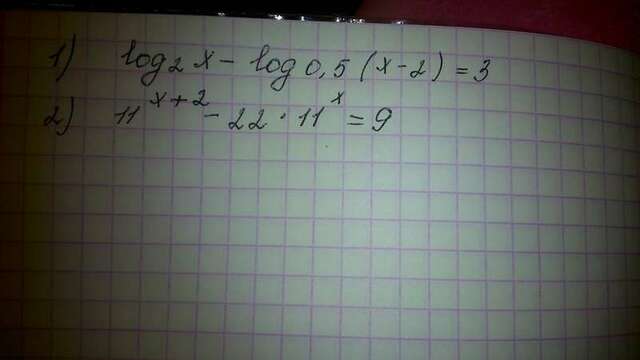 1) log₂x - log0,5(x-2) = 3
2) 11^(x+2) - 22 · 11^x = 9